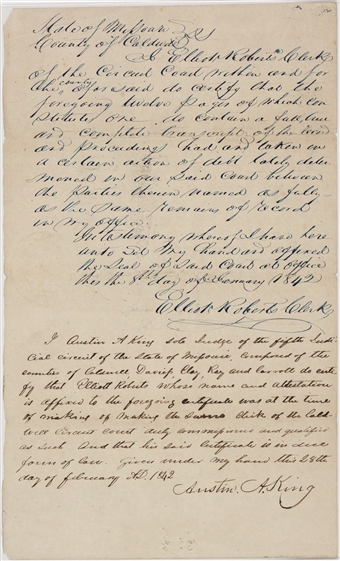 State of Missouri
County of Caldwell
I Elliott Roberts Clerk
of the Circuit Court within and for
the county aforesaid do certify that the
foregoing twelve pages of which con
stitutes one do contain a full true
and complete transcript of the record
and proceedings had and taken in
a certain action of debt lately deter
mined in our said Court between
the Parties therein named as fully
as the same remains of record
in my office
In testimony whereof I have here
unto Set my hand and affixed
the Seal of Said Court at office
this the 8th day of January 1842
Elliott Roberts Clerk
I Austin A King sole Judge of the fifth Judi
cial circuit of the State of Missouri, composed of the
counties of Caldwell Daviess, Clay, Ray and Carroll do certi
fy that Elliott Roberts whose name and attestation
is affixed to the foregoing certificate was at the time
of making of making the same Clerk of the Cald
well Circuit court duly commissioned and qualified
as such And that his said Certificate is in due
form of law. Given under my hand this 28th
day of february AD. 1842
Austin. A. King